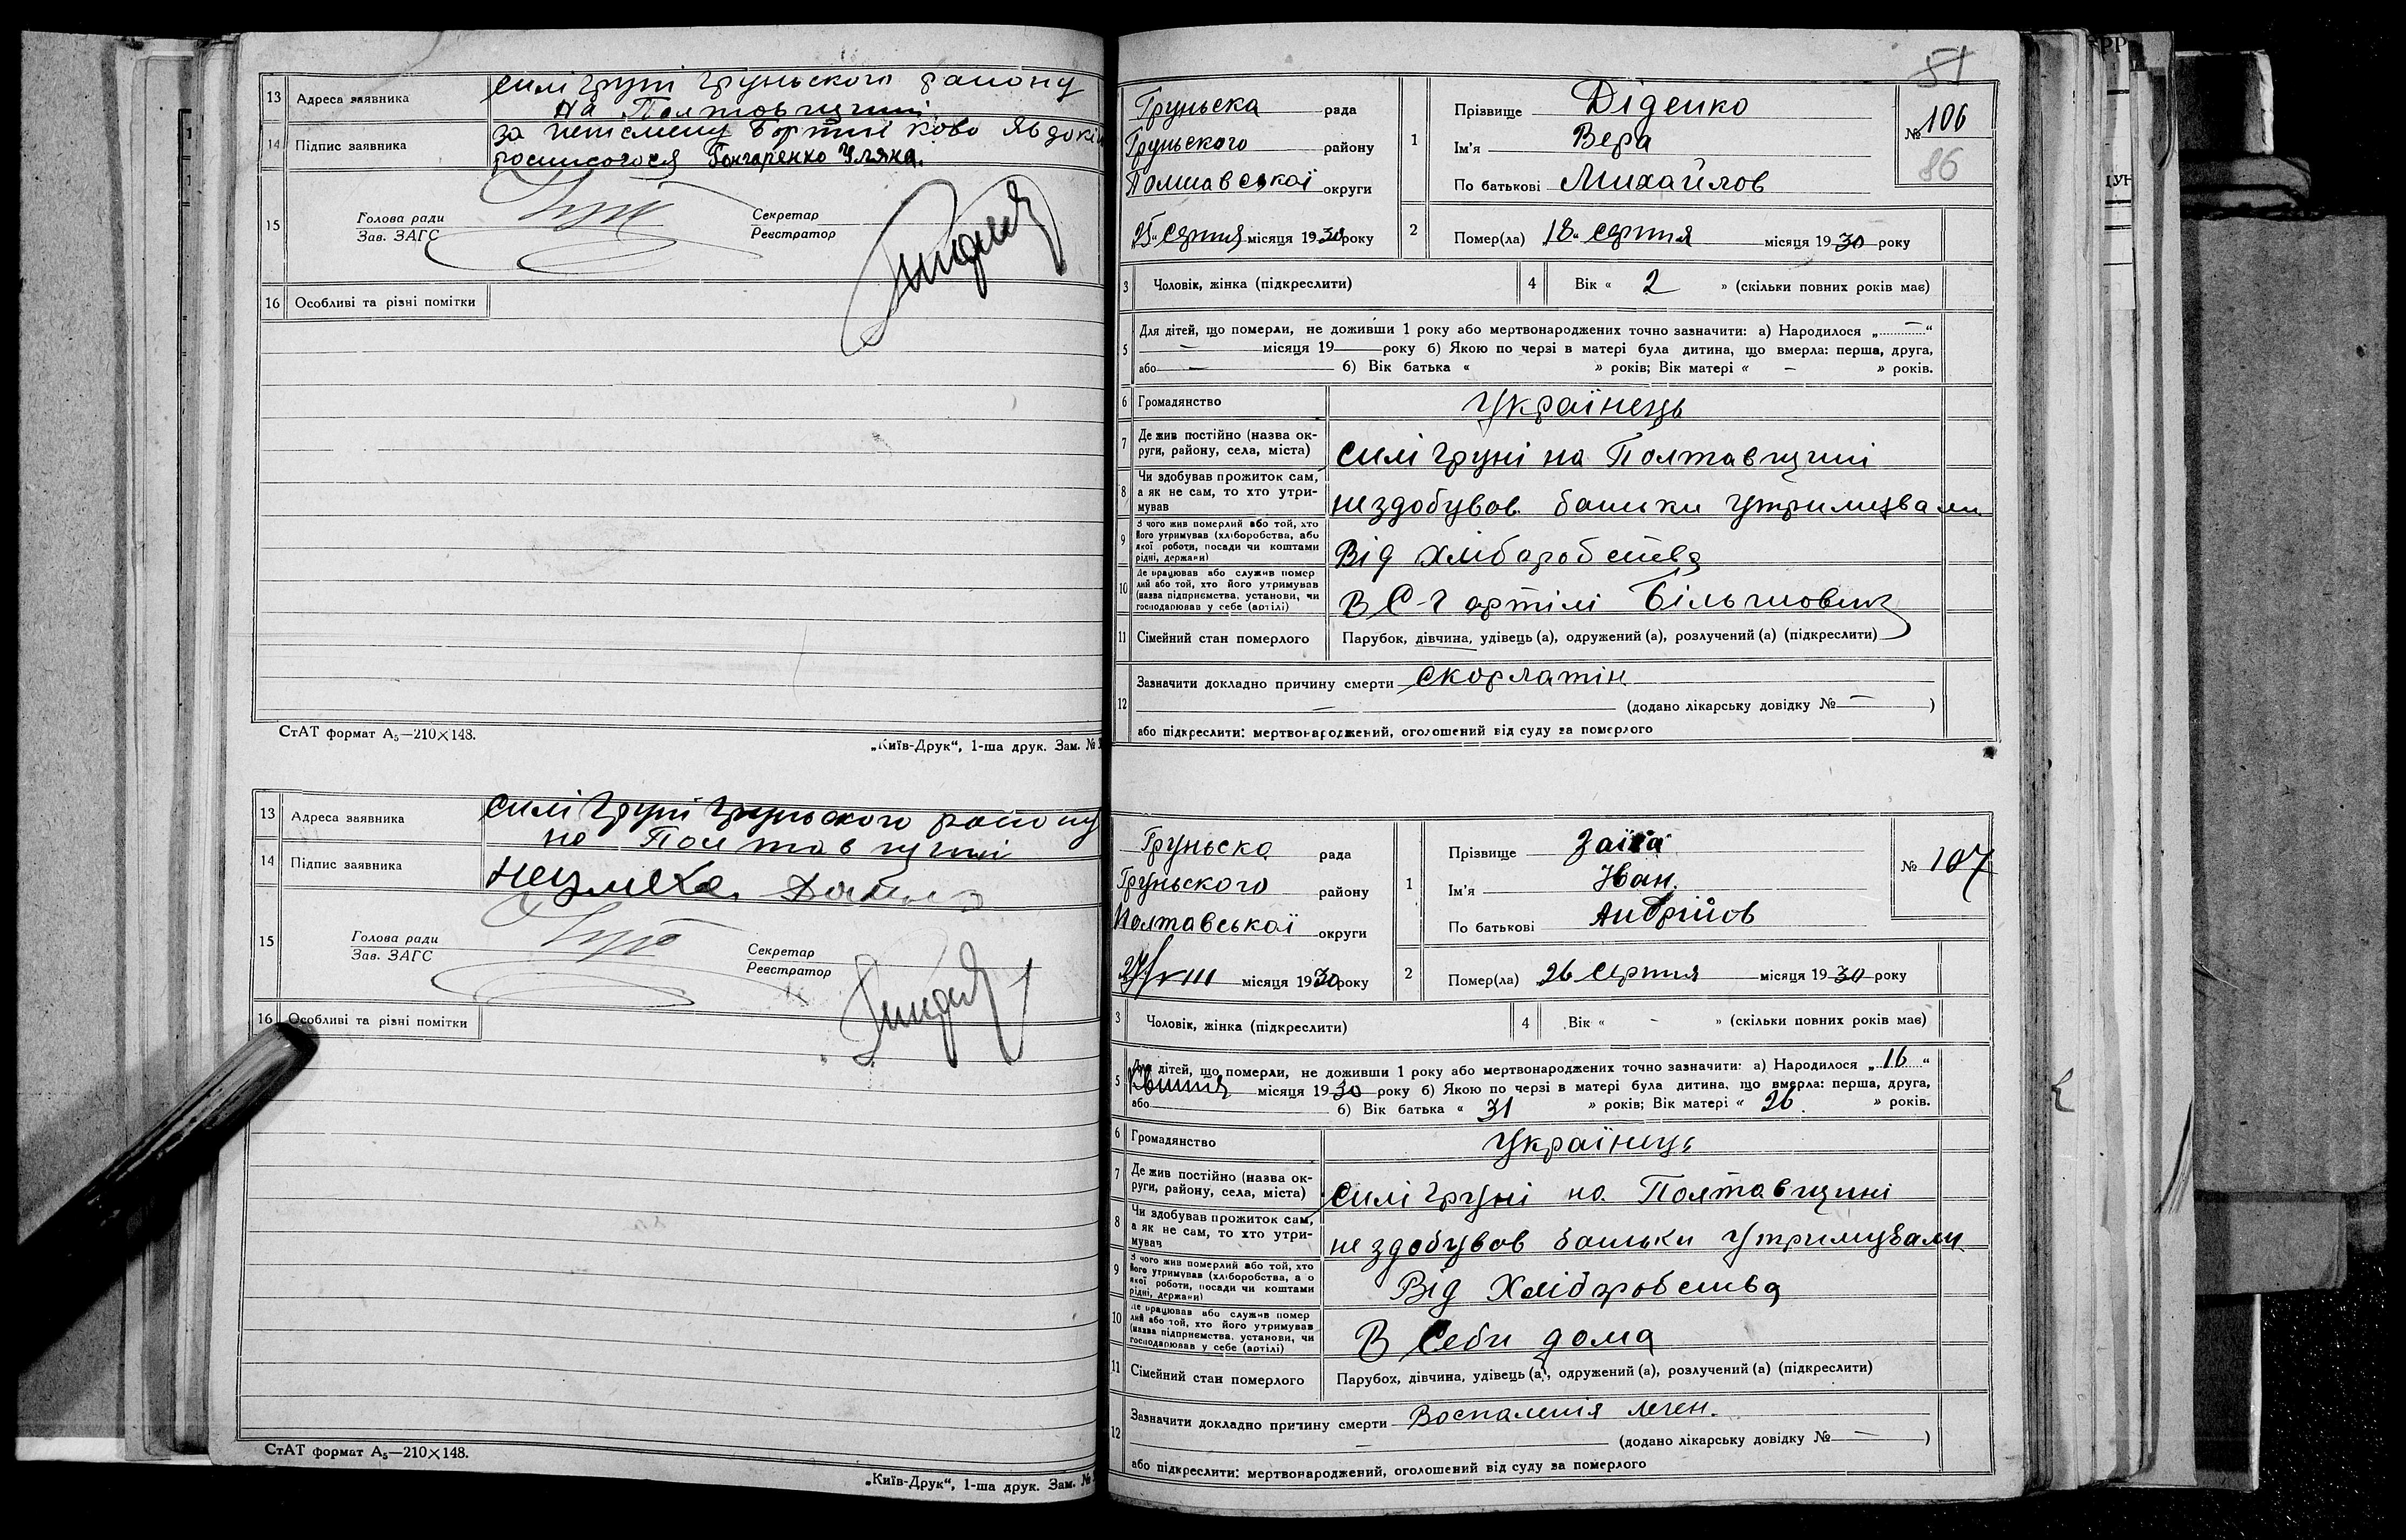 13 Адреса заявника силі Груні Груньского району
на Полтавщині
14 Підпис заявника за неписмену
росписалася Гончаренко Уляна.
15 Голова ради
Зав. ЗАГС
Секретар
Реєстратор
16 Особливі та різні помітки
СтАТ формат А₅—210×148.
„Київ-Друк“, 1-ша друк. Зам. №
13 Адреса заявника силі Груні Груньского району
на Полтавщині
14 Підпис заявника
15 Голова ради
Зав. ЗАГС
Секретар
Реєстратор
16 Особливі та різні помітки
СтАТ формат А₅—210×148.
„Київ-Друк“, 1-ша друк. Зам. №
51
Груньска рада
Груньского району
Полтавської округи
25 „ серпня місяця 1930 року
1 Прізвище Діденко
Ім'я Вера
По батькові Михайлов
№ 106
86
2 Помер(ла) 18 „ серпня місяця 1930 року
3 Чоловік, жінка (підкреслити) 4 Вік « 2 » (скільки повних років має)
5 Для дітей, що померли, не доживши 1 року або мертвонароджених точно зазначити: а) Народилося „ — “
— місяця 19 року б) Якою по черзі в матері була дитина, що вмерла: перша, друга,
або — б) Вік батька « » років; Вік матері « – » років.
6 Громадянство Українець
7 Де жив постійно (назва ок-
руги, району, села, міста) силі Груні на Полтавщині
8 Чи здобував прожиток сам,
а як не сам, то хто утри-
мував нездобував батьки утримували
9 З чого жив померлий або той, хто
його утримував (хліборобства, або
якої роботи, посади чи коштами
рідні, держави) Від хліборобства
10 Де працював або служив помер
лий або той, хто його утримував
(назва підприємства, установи, чи
господарював у себе (артілі) В С-Г артілі Більшовик
11 Сімейний стан померлого Парубок, дівчина, удівець (а), одружений (а), розлучений (а) (підкреслити)
12 Зазначити докладно причину смерти Скорлатін
— (додано лікарську довідку № — )
або підкреслити: мертвонароджений, оголошений від суду за померлого
Груньска рада
Груньского району
Полтавської округи
місяця 1930 року
1 Прізвище Заїка
Ім'я Іван.
По батькові Андрійов
№ 107
2 Помер(ла) 26 серпня місяця 1930 року
3 Чоловік, жінка (підкреслити) 4 Вік « – » (скільки повних років має)
5 Для дітей, що померли, не доживши 1 року або мертвонароджених точно зазначити: а) Народилося „ 16 “
квітня місяця 1930 року б) Якою по черзі в матері була дитина, що вмерла: перша, друга,
або б) Вік батька « 31 » років; Вік матері « 26. » років.
6 Громадянство Українець
7 Де жив постійно (назва ок-
руги, району, села, міста) силі Груні на Полтавщині
8 Чи здобував прожиток сам,
а як не сам, то хто утри-
мував не здобував батьки утримували
9 З чого жив померлий або той, хто
його утримував (хліборобства, а о
якої роботи, посади чи коштами
рідні, держави) Від Хліборобства
10 Де працював або служив помер
лий або той, хто його утримував
(назва підприємства, установи, чи
господарював у себе (артілі) В Себи дома
11 Сімейний стан померлого Парубок, дівчина, удівець (а), одружений (а), розлучений (а) (підкреслити)
12 Зазначити докладно причину смерти Воспаления леген.
— (додано лікарську довідку № — )
або підкреслити: мертвонароджений, оголошений від суду за померлого